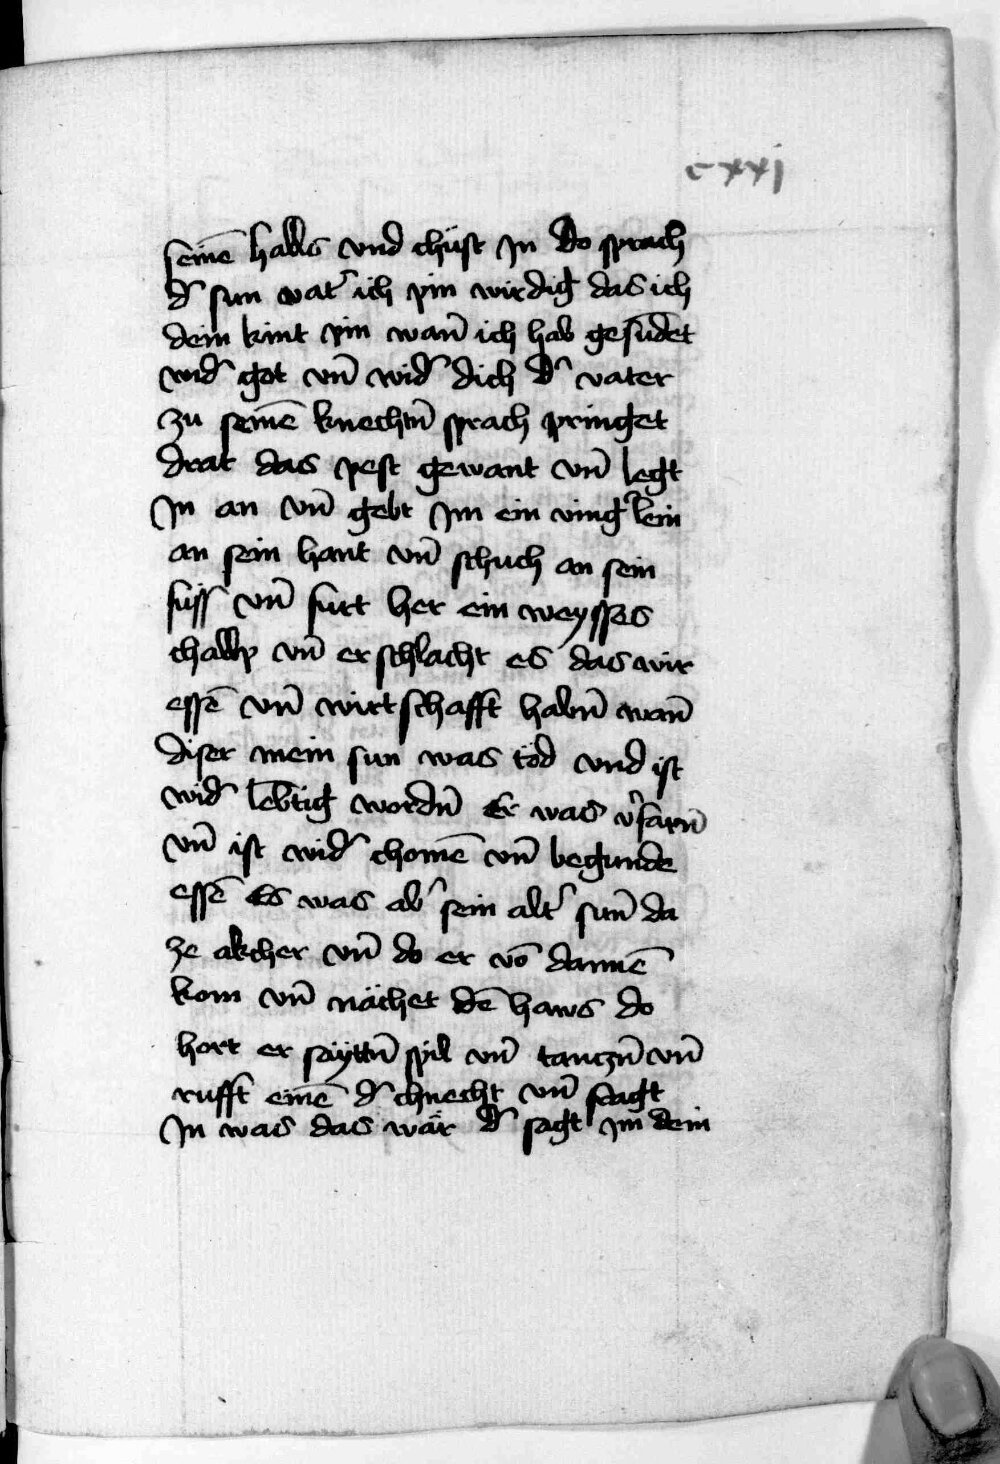 cxxj
seinē halls vnd chüst In Do sprach
d' sun vat' ich pin wirdig das ich
dein kint pin wan̄ ich hab gesūdet
wid' got vn̄ wid' dich d' vater
zu seinē knechtn̄ sprach pringet
drat das pest gewant vn̄ legt
In an vn̄ gebt Im ein ving'lein
an sein hant vn̄ schuch an sein
fuss vn̄ furt her ein weysses
challp vn̄ er schlacht es das wir
essē vn̄ wirtschafft habn̄ wan̄
diser mein sun was töd vnd ist
wid' lebtig wordn̄ Er was v'farn̄
vn̄ ist wid' chomē vn̄ begunde
essē Es was ab' sein alt' sun̄ da
ze akcher vn̄ do er vō dannē
kom vn̄ nächet dē haws do
hort er säyttn̄ spil vn̄ tanczn̄ vn̄
rufft einē d' chnecht vn̄ fragt
In was das wär d' sagt im dein